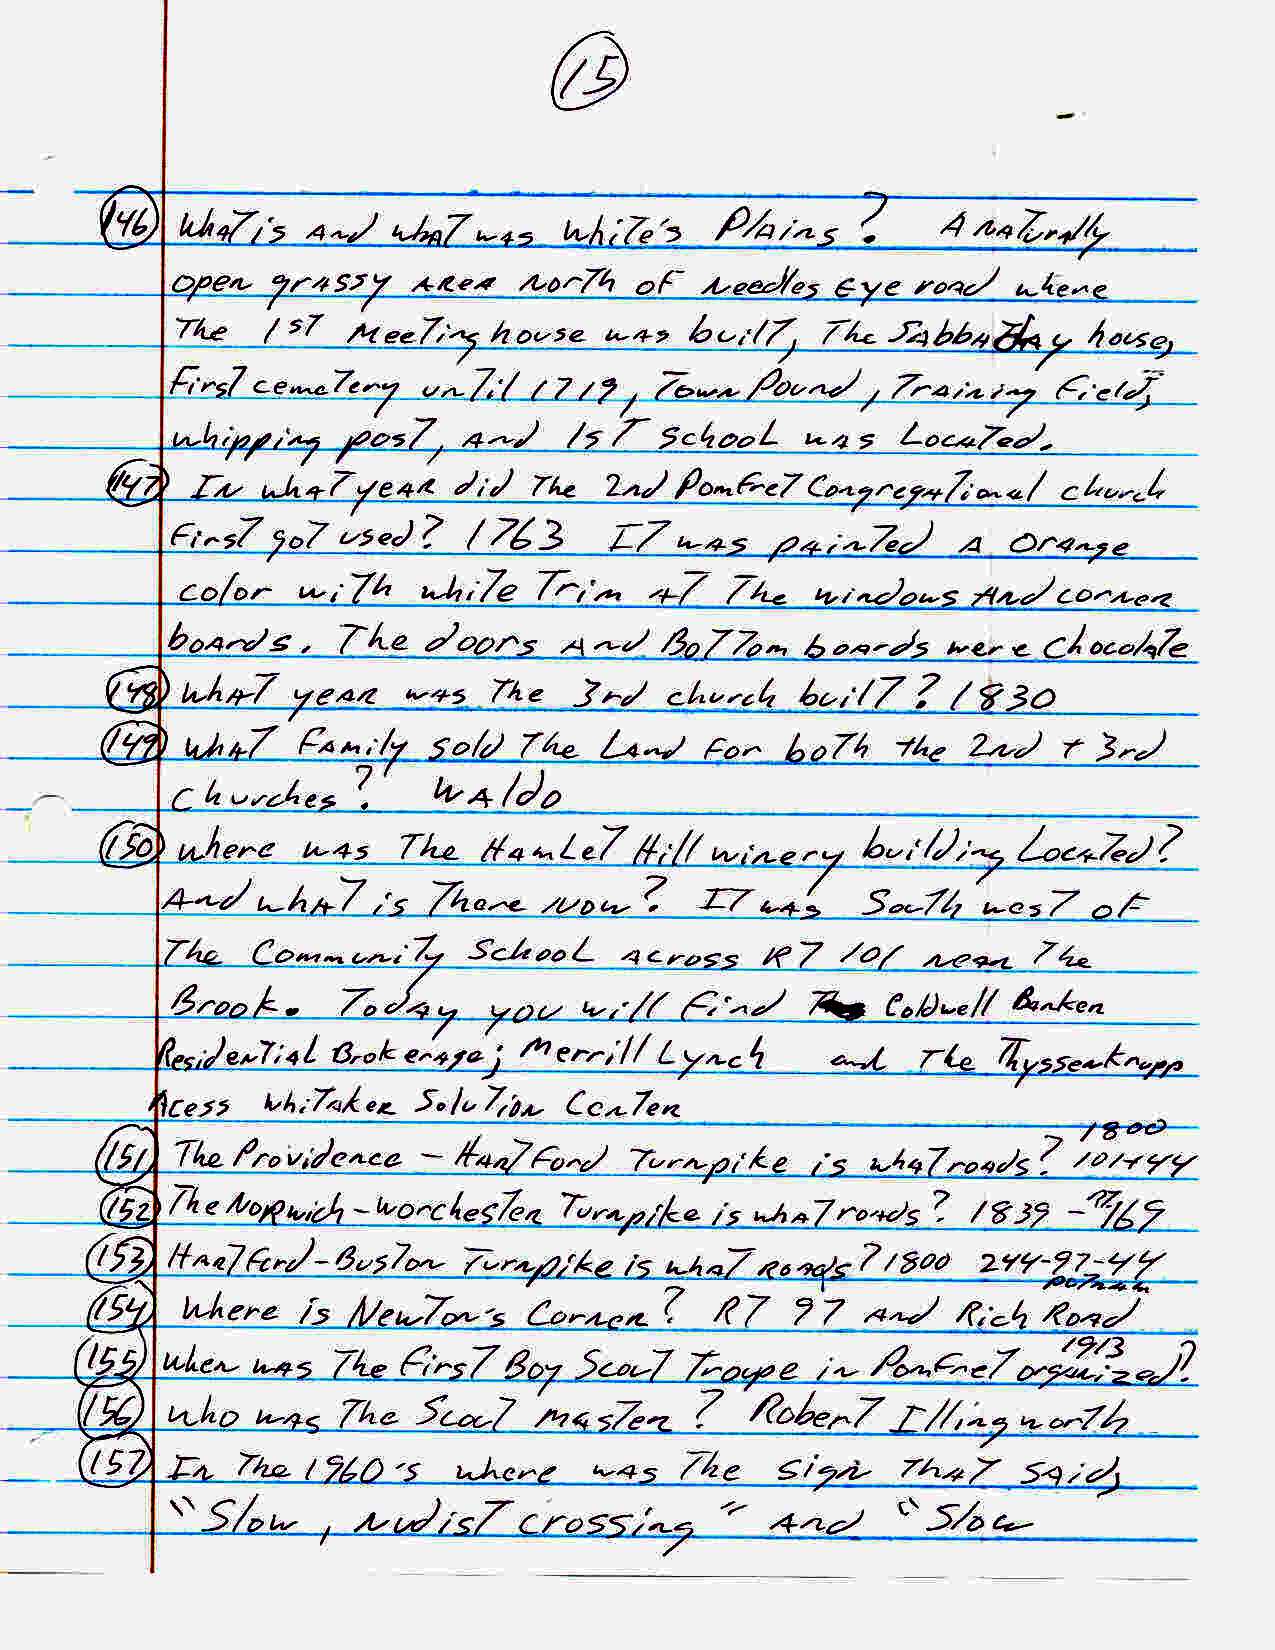 15
146 What is and what was White's Plains? A naturally
open grassy area north of Needles Eye road where
the 1st Meeting house was built, the Sabbathday house,
first cemetery until 1719, Town Pound, Training Field,
whipping post, and 1st school was Located.
147 In what year did the 2nd Pomfret Congregational church
first got used? 1763 It was painted a orange
color with white Trim at the windows and corner
boards. The doors and Bottom boards were Chocolate
148 What year was the 3rd church built? 1830
149 What Family sold the Land for both the 2nd + 3rd
churches? Waldo
150 where was the Hamlet Hill winery building Located?
And what is There Now? It was South west of
The Community School across RT 101 near the
Brook. Today you will find Coldwell Banker
Residential Brokerage; Merrill Lynch and The Thyssenkrupp
Acess Whitaker Solution Center
1800
151 The Providence - Hartford Turnpike is what roads? 101+44
152 The Norwich-Worchester Turnpike is what roads? 1839 - RT 169
153 Hartford-Buston Turnpike is what roads? 1800 244-97-44
putnam
154 Where is Newton's Corner? RT 97 and Rich Road
1913
155 when was the first Boy Scout Troupe in Pomfret organized?
156 Who was the Scout master? Robert Illingworth
157 In the 1960's where was the sign that said,
"Slow, Nudist crossing" and "Slow